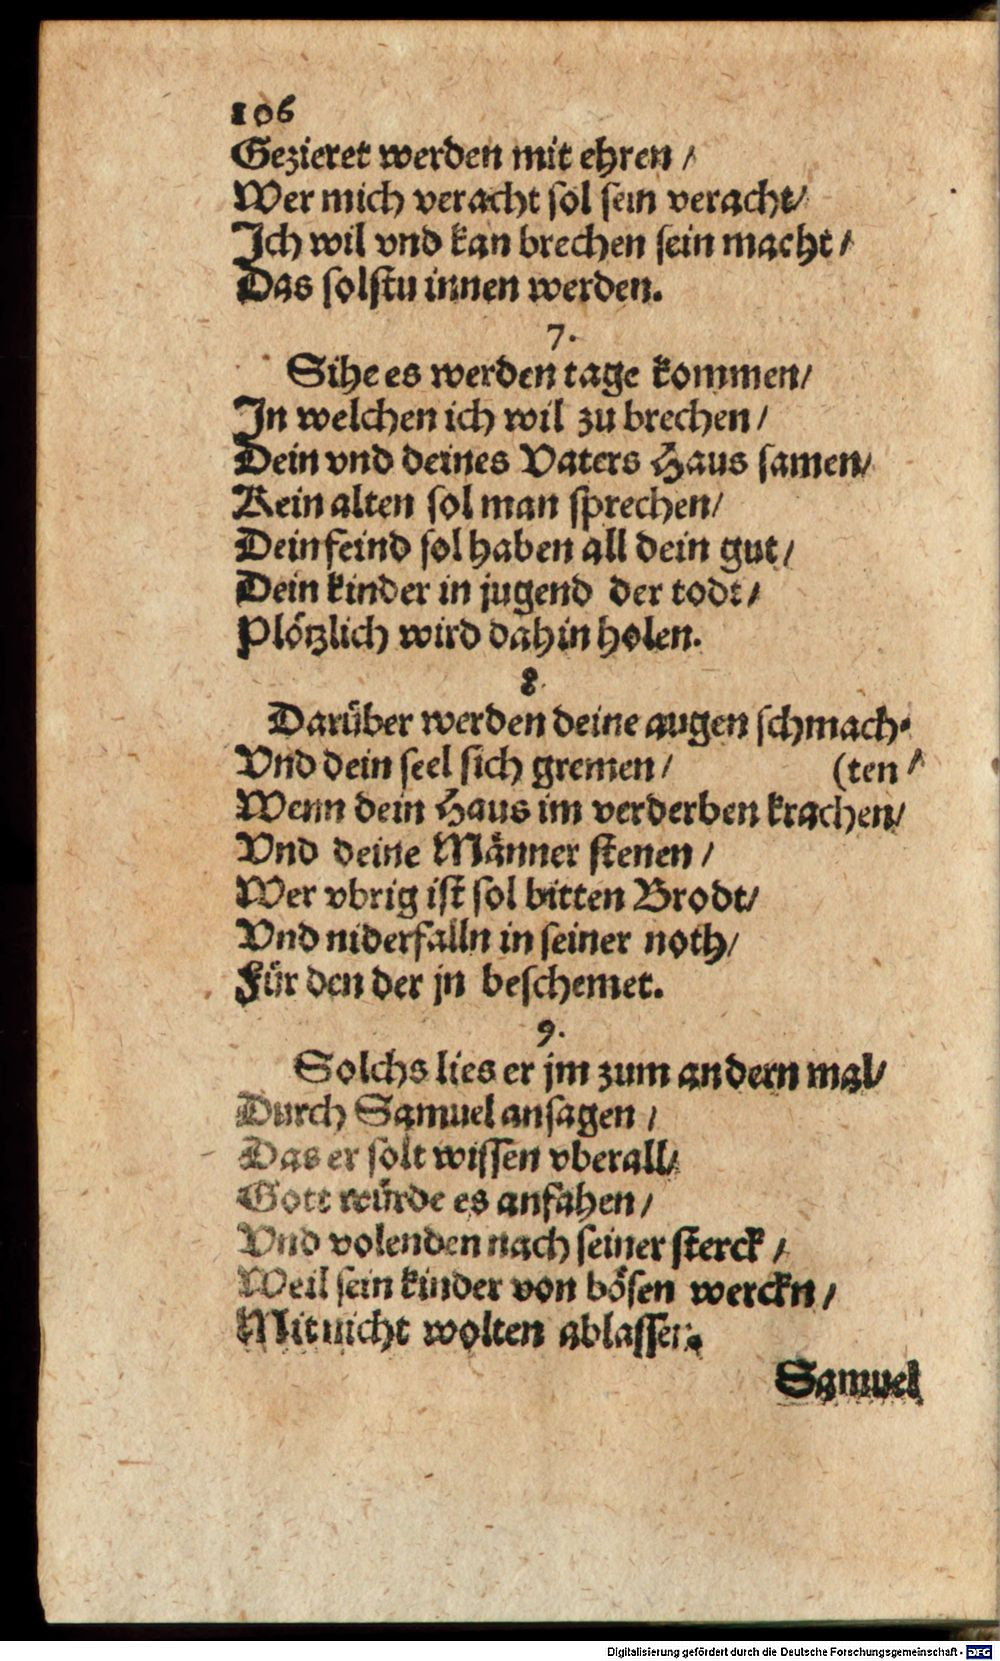 106
Gezieret werden mit ehren /
Wer mich veracht sol sein veracht/
Ich wil vnd kan brechen sein macht /
Das solstu innen werden.
7.
Sihe es werden tage kommen/
In welchen ich wil zu brechen /
Dein vnd deines Vaters Haus samen/
Kein alten sol man sprechen/
Dein feind sol haben all dein gut /
Dein kinder in jugend der todt /
Plötzlich wird dahin holen.
8.
Darüber werden deine augen schmach-
Vnd dein seel sich gremen / (ten /
Wenn dein Haus im verderben krachen/
Vnd deine Männer stenen /
Wer vbrig ist sol bitten Brodt/
Vnd niderfalln in seiner noth/
Für den der jn beschemet.
9.
Solchs lies er jm zum andern mal/
Durch Samuel ansagen /
Das er solt wissen vberall/
Gott würde es anfahen /
Vnd volenden nach seiner sterck /
Weil sein kinder von bösen werckn /
Mit nicht wolten ablassen.
Samuel
Digitalisierung gefördert durch die Deutsche Forschungsgemeinschaft - DFG